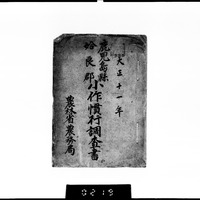 大正十一年
鹿児島縣
姶良郡
小作慣行調査書
農商省農務局
0219